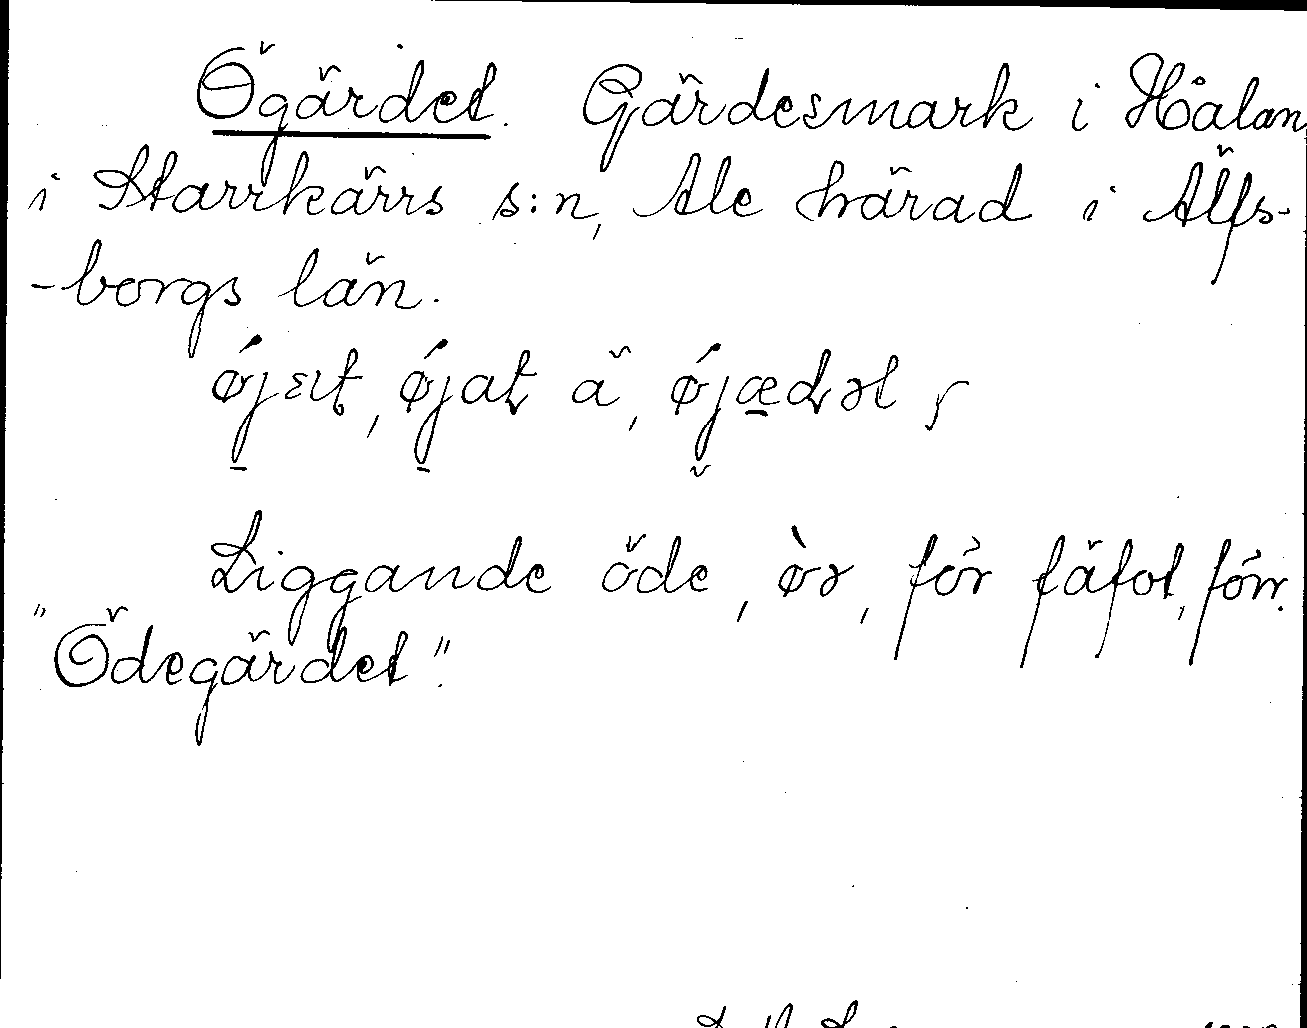 Ögärdet. Gärdesmark i Hålan,
i Starrkärrs s:n, Ale härad i Älfs-
-borgs län.
ä,
Liggande öde, för fäfot, förr.
"Ödegärdet".